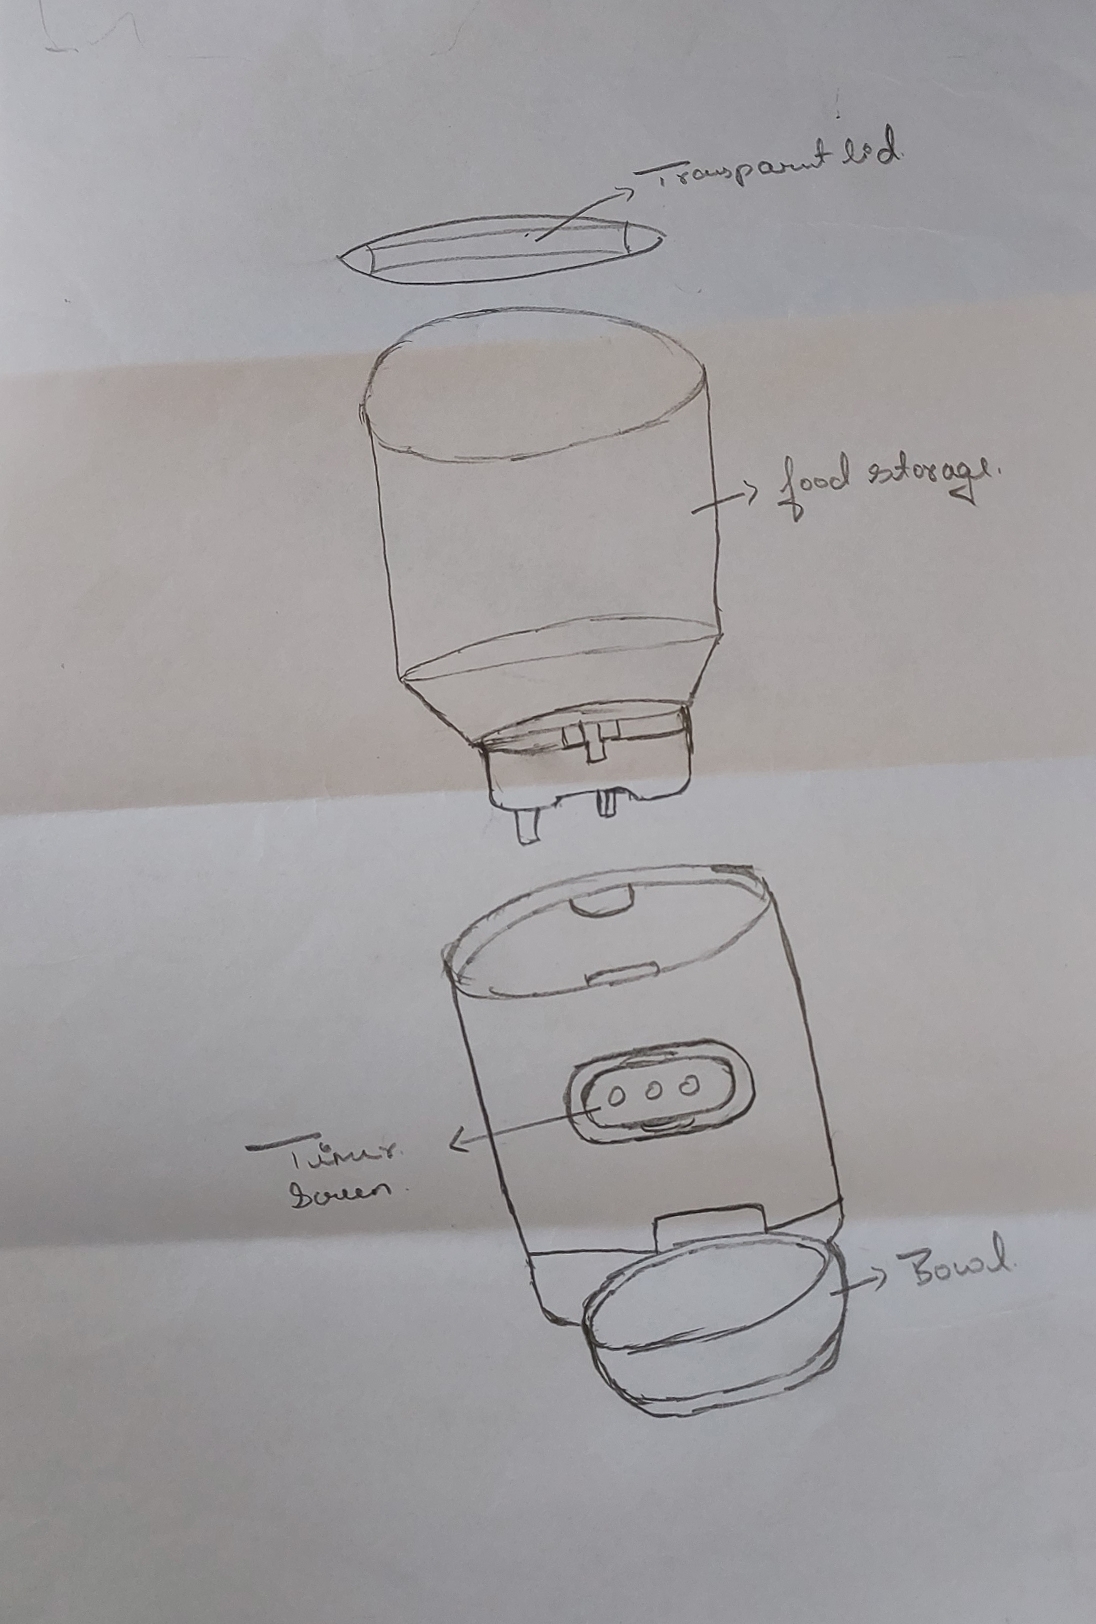 Transparent lid.
food storage.
Timer
Screen.
Bowl.